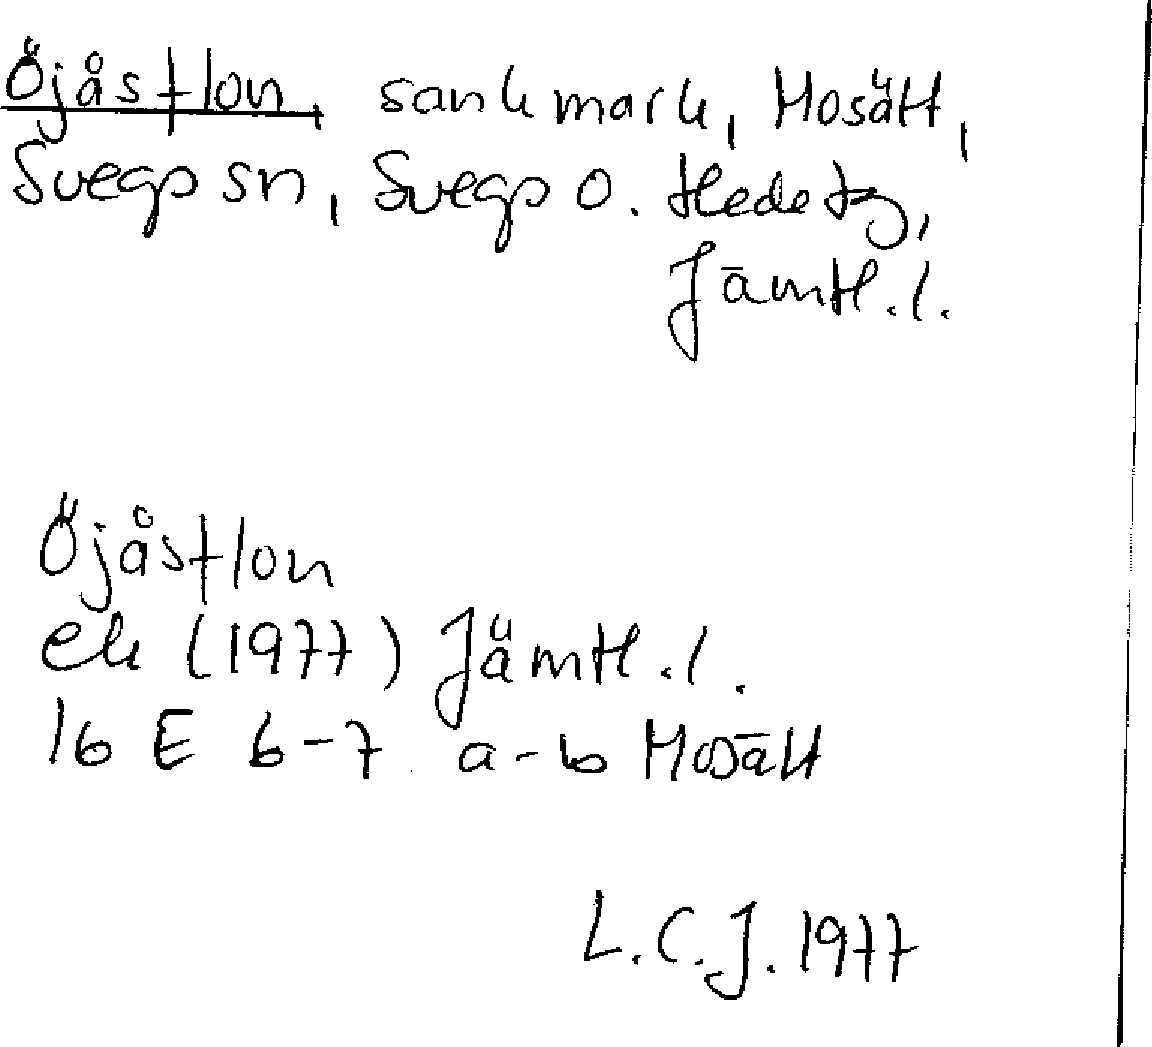 Öjåstlon, sankmark, Mosätt,
Svegs sn, Svegs o. Hede tg,
Jämtl. l.
Öjåstlon
ek (1977) Jämtl. l.
16 E 6-7 a-b Mosätt
L.C.J. 1977